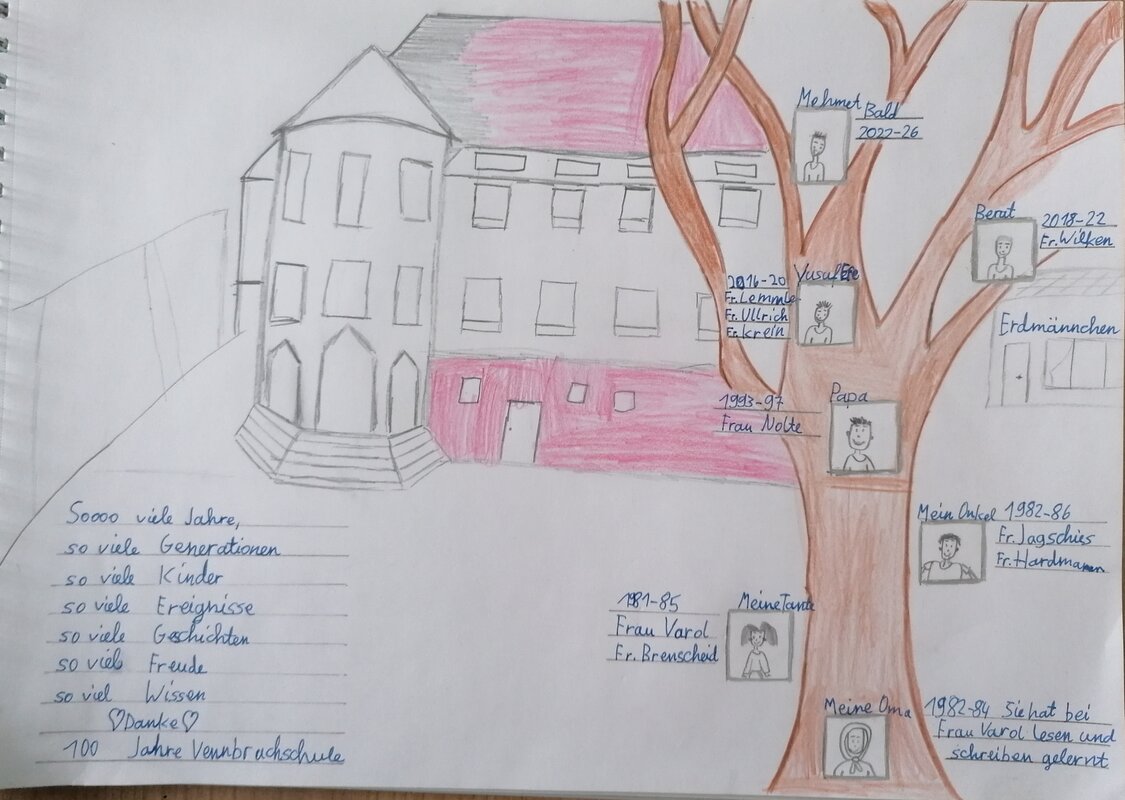 Mehmet Bald
2022-26
Berat
2018-22
Fr. Wilken
2016-20
Fr. Lemmle
Fr. Ullrich
Fr. Krein
Yusuf Efe
Erdmännchen
Papa
1993-97
Frau Nolte
Mein Onkel
1982-86
Fr. Jagschies
Fr. Hardmann
Meine Tante
1981-85
Frau Varol
Fr. Brenscheid
Meine Oma
1982-84 Sie hat bei
Frau Varol lesen und
schreiben gelernt
Soooo viele Jahre,
so viele Generationen
so viele Kinder
so viele Ereignisse
so viele Geschichten
so viel Freude
so viel Wissen
♡Danke♡
100 Jahre Vennbrachschule